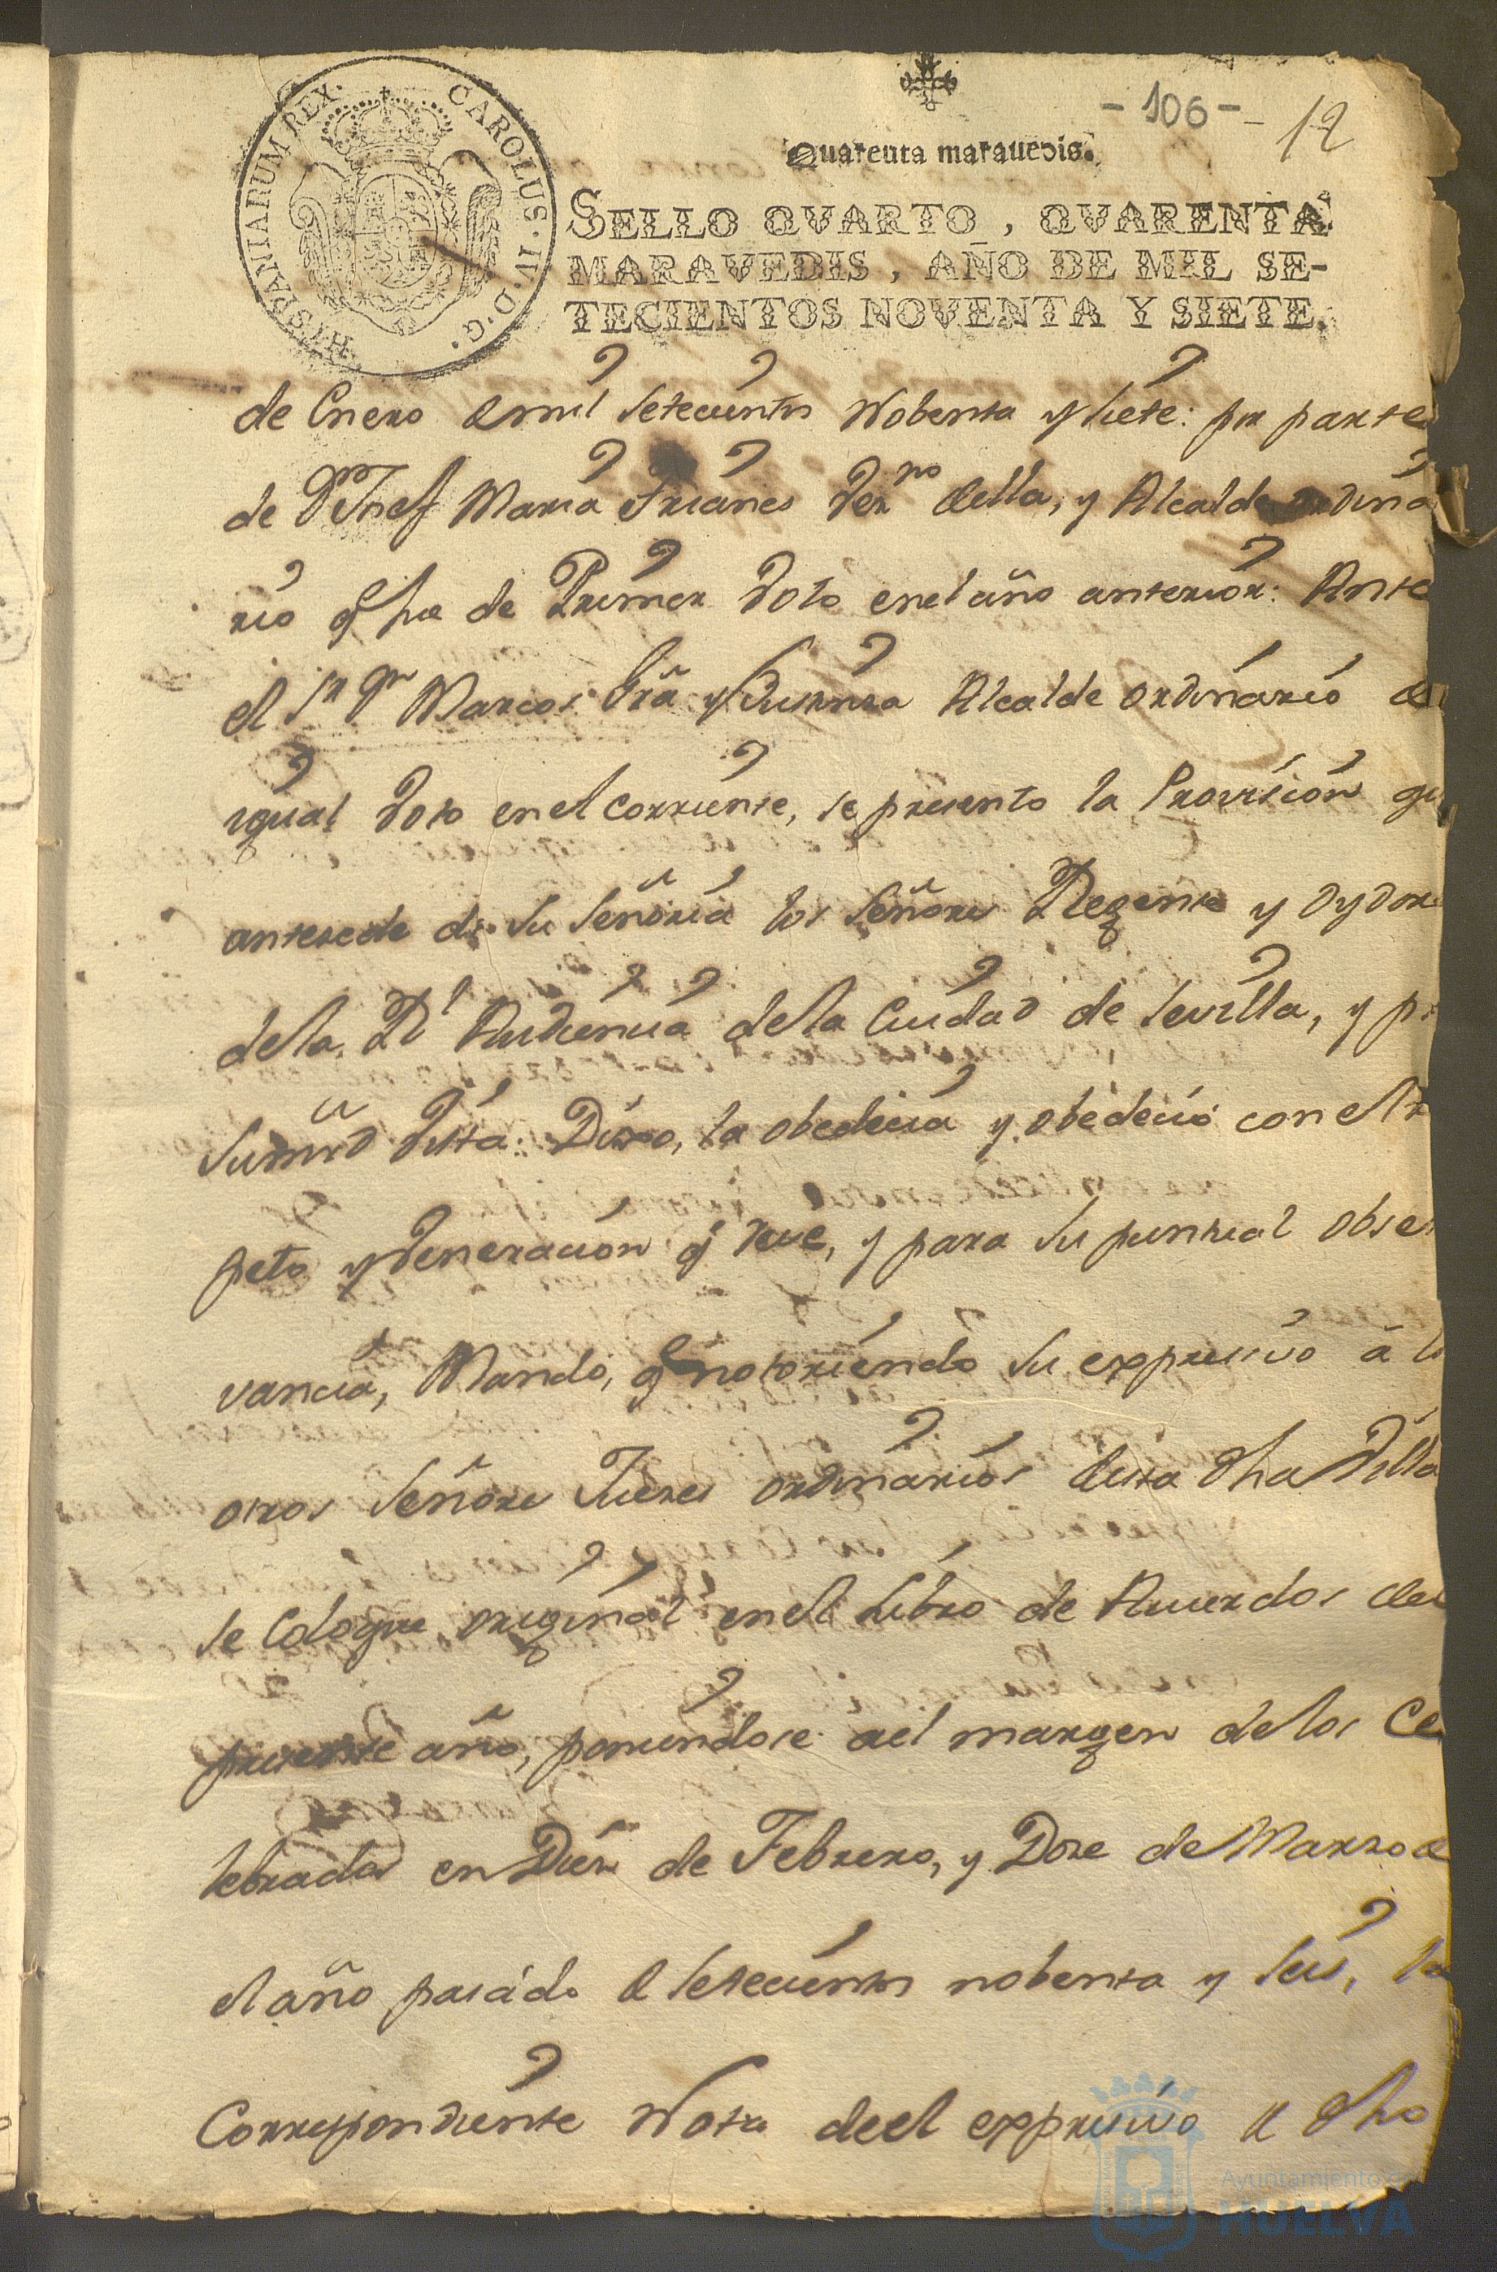 - 106 - - 12
Quarenta maravedis.
HISPANIARUM REX. CAROLUS. IV. D. G.
SELLO QVARTO, QVARENTA
MARAVEDIS, AÑO DE MIL SE-
TECIENTOS NOVENTA Y SIETE.
de Enero mil setecientos Nobenta y siete: por parte
de Dn Josef Maria Trianes Vezno de ella, y Alcalde ordina
rio q fue de Primer Voto en el año anterior: Ante
el Sr Dn Marcos Alcalde ordinario de
igual Voto en el corriente, se presento la Provision q
antecede de Su Señoria los Señores Regente y Oydore
de la Rl Audiencia de la Ciudad de Sevilla, y p
Su mrd Vista: Dixo, la obedecia y obedecio con el r
peto y Veneracion q deve, y para su puntual obser
vancia, Mando, q notoriendo su expresivo a lo
otros Señores Juezes ordinarios desta dha Villa
se Coloque original en el Libro de Acuerdos del
presente año, poniendose al margen de los Ce
lebrados en Diez de Febrero, y Doze de Marzo d
el año pasado setecientos nobenta y seis, la
Correspondiente Nota de el expresivo dho
Ayuntamiento
HUELVA